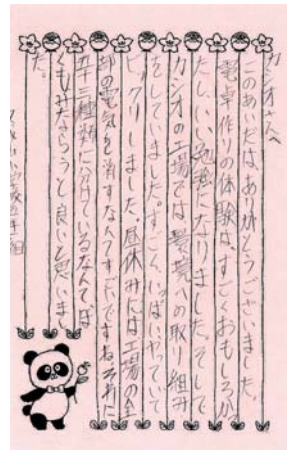 カシオさんへ
このあいだは、ありがとうございました。
電卓作りの体験は、すごくおもしろかっ
たし、いい勉強になりました。そして
カシオの工場では環境への取り組み
をしていました。すごく、いっぱいやってい
ビックリしました。昼休みには工場の全
部の電気を消すなんてすごいですね。それに
五十三種類に分けているなんて、ぼ
くもみならうと良いと思いまし
た。